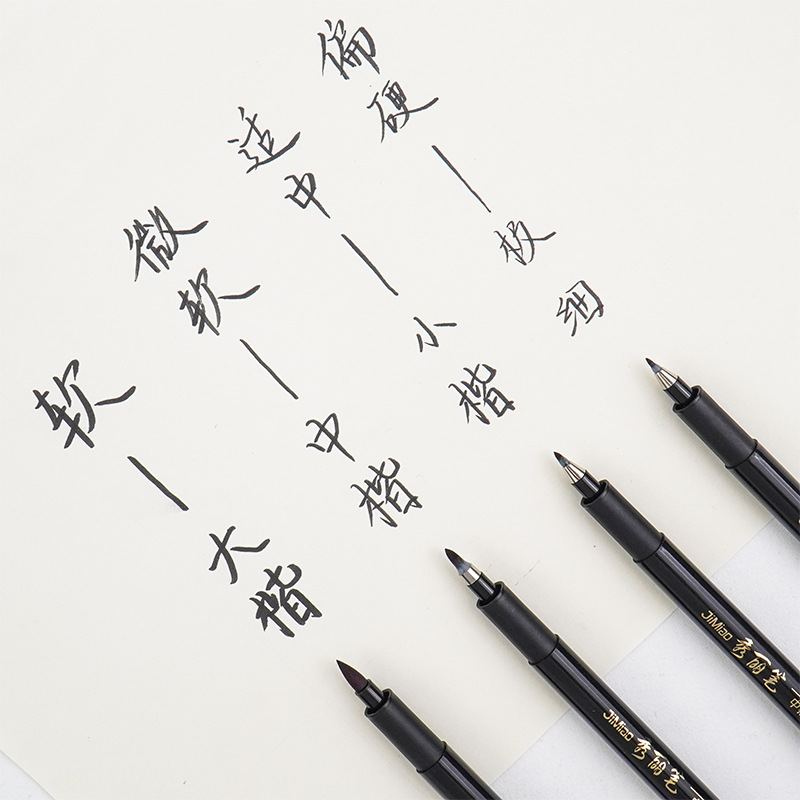 软—大楷
微软—中楷
适中—小楷
偏硬—极细
JiMiao 秀丽笔
JiMiao 秀丽笔